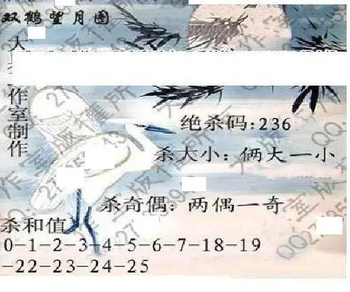 双鹤望月图
大
作室制作
绝杀码:236
杀大小:俩大一小
杀奇偶:两偶一奇
杀和值
0-1-2-3-4-5-6-7-18-19
-22-23-24-25